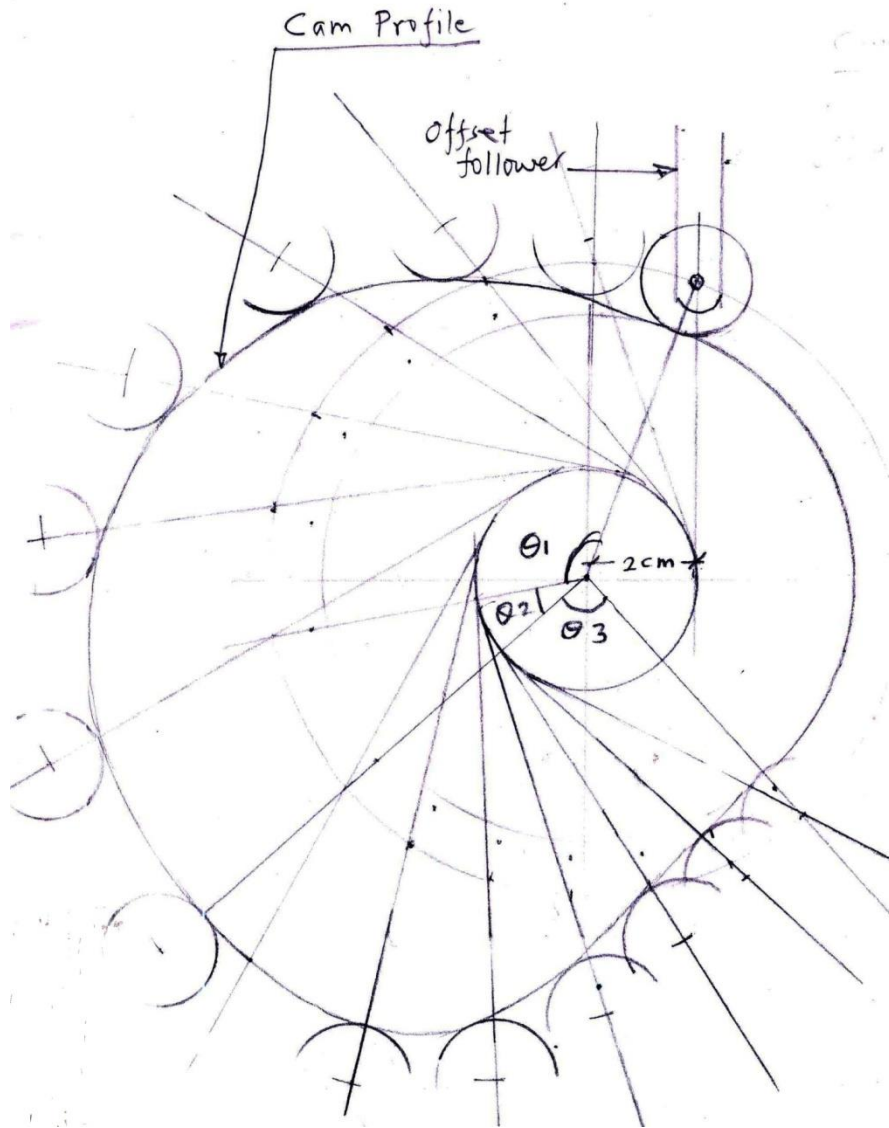 Cam Profile
Offset
follower
θ1
2cm
θ2
θ3